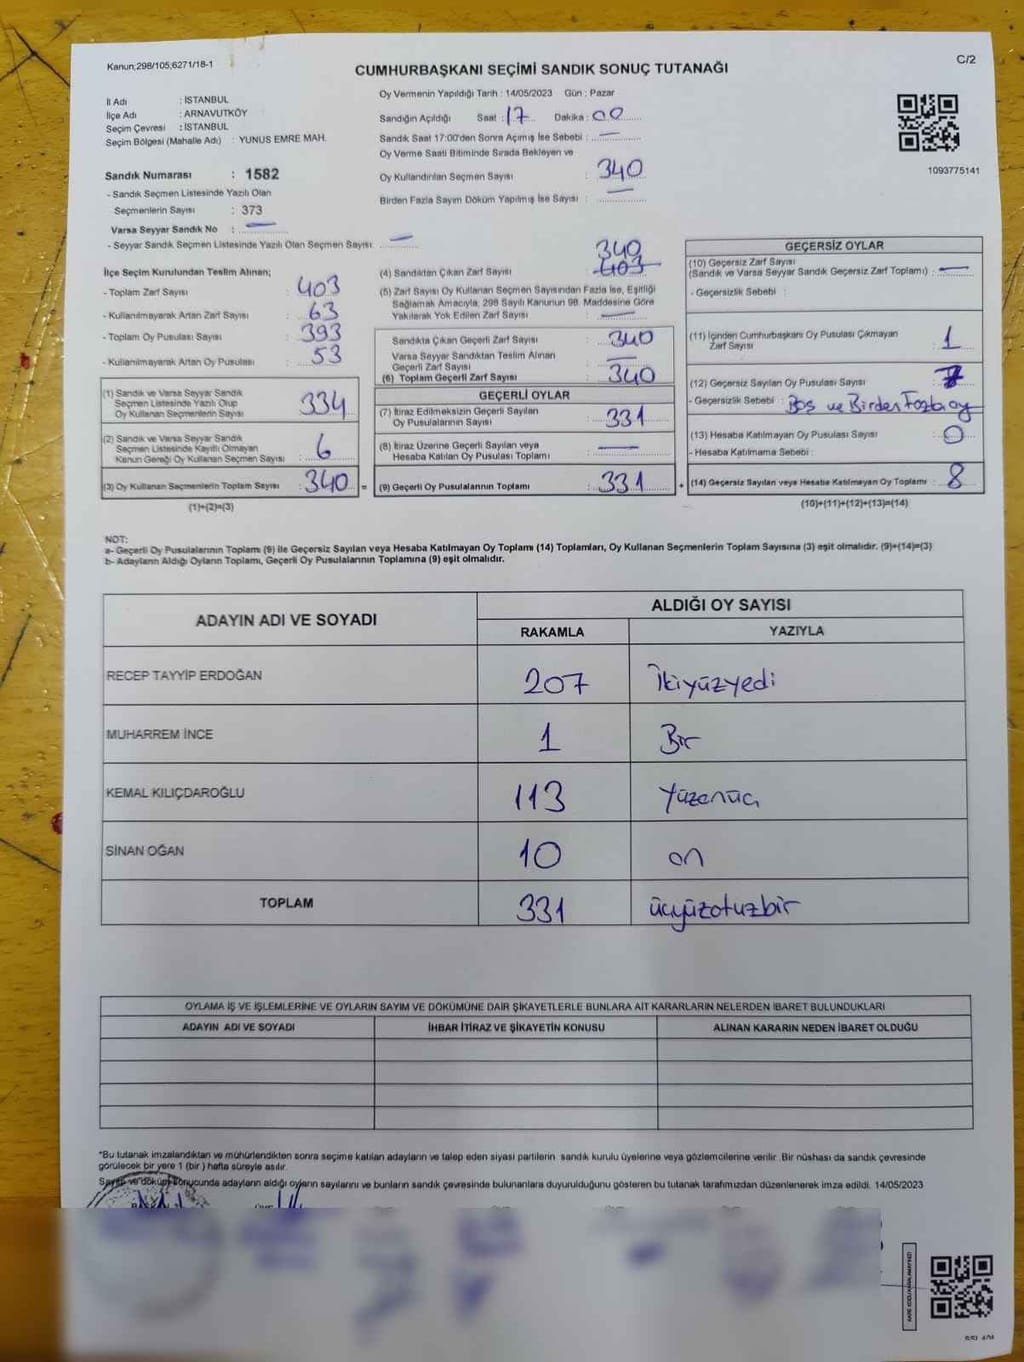 Kanun;298/105;6271/18-1
CUMHURBAŞKANI SEÇİMİ SANDIK SONUÇ TUTANAĞI
C/2
İl Adı : İSTANBUL
İlçe Adı : ARNAVUTKÖY
Seçim Çevresi : İSTANBUL
Seçim Bölgesi (Mahalle Adı) : YUNUS EMRE MAH.
Sandık Numarası : 1582
- Sandık Seçmen Listesinde Yazılı Olan
Seçmenlerin Sayısı : 373
Varsa Seyyar Sandık No : —
- Seyyar Sandık Seçmen Listesinde Yazılı Olan Seçmen Sayısı: —
Oy Vermenin Yapıldığı Tarih : 14/05/2023 Gün : Pazar
Sandığın Açıldığı Saat : 17 Dakika : 00
Sandık Saat 17:00'den Sonra Açımış İse Sebebi : —
Oy Verme Saati Bitiminde Sırada Bekleyen ve
Oy Kullandırılan Seçmen Sayısı : 340
Birden Fazla Sayım Döküm Yapılmış İse Sayısı : —
1093775141
İlçe Seçim Kurulundan Teslim Alınan;
- Toplam Zarf Sayısı : 403
- Kullanılmayarak Artan Zarf Sayısı : 63
- Toplam Oy Pusulası Sayısı : 393
- Kullanılmayarak Artan Oy Pusulası : 53
(1) Sandık ve Varsa Seyyar Sandık
Seçmen Listesinde Yazılı Olup
Oy Kullanan Seçmenlerin Sayısı : 334
(2) Sandık ve Varsa Seyyar Sandık
Seçmen Listesinde Kayıtlı Olmayan
Kanun Gereği Oy Kullanan Seçmen Sayısı : 6
(3) Oy Kullanan Seçmenlerin Toplam Sayısı : 340 =
(1)+(2)=(3)
340
(4) Sandıktan Çıkan Zarf Sayısı : 403
(5) Zarf Sayısı Oy Kullanan Seçmen Sayısından Fazla İse, Eşitliği
Sağlamak Amacıyla, 298 Sayılı Kanunun 98. Maddesine Göre
Yakılarak Yok Edilen Zarf Sayısı : —
Sandıkta Çıkan Geçerli Zarf Sayısı : 340
Varsa Seyyar Sandıktan Teslim Alınan
Geçerli Zarf Sayısı : —
(6) Toplam Geçerli Zarf Sayısı : 340
GEÇERLİ OYLAR
(7) İtiraz Edilmeksizin Geçerli Sayılan
Oy Pusulalarının Sayısı : 331
(8) İtiraz Üzerine Geçerli Sayılan veya
Hesaba Katılan Oy Pusulası Toplamı : —
(9) Geçerli Oy Pusulalarının Toplamı : 331 +
GEÇERSİZ OYLAR
(10) Geçersiz Zarf Sayısı
(Sandık ve Varsa Seyyar Sandık Geçersiz Zarf Toplamı) : —
- Geçersizlik Sebebi :
(11) İçinden Cumhurbaşkanı Oy Pusulası Çıkmayan
Zarf Sayısı : 1
(12) Geçersiz Sayılan Oy Pusulası Sayısı : 7
- Geçersizlik Sebebi : Boş ve Birden Fazla oy
(13) Hesaba Katılmayan Oy Pusulası Sayısı : 0
- Hesaba Katılmama Sebebi :
(14) Geçersiz Sayılan veya Hesaba Katılmayan Oy Toplamı : 8
(10)+(11)+(12)+(13)=(14)
NOT:
a- Geçerli Oy Pusulalarının Toplam (9) ile Geçersiz Sayılan veya Hesaba Katılmayan Oy Toplamı (14) Toplamları, Oy Kullanan Seçmenlerin Toplam Sayısına (3) eşit olmalıdır. (9)+(14)=(3)
b- Adayların Aldığı Oyların Toplamı, Geçerli Oy Pusulalarının Toplamına (9) eşit olmalıdır.
ADAYIN ADI VE SOYADI ALDIĞI OY SAYISI
RAKAMLA YAZIYLA
RECEP TAYYİP ERDOĞAN 207 İkiyüzyedi
MUHARREM İNCE 1 Bir
KEMAL KILIÇDAROĞLU 113 Yüzonüç
SİNAN OĞAN 10 on
TOPLAM 331 üçyüzotuzbir
OYLAMA İŞ VE İŞLEMLERİNE VE OYLARIN SAYIM VE DÖKÜMÜNE DAİR ŞİKAYETLERLE BUNLARA AİT KARARLARIN NELERDEN İBARET BULUNDUKLARI
ADAYIN ADI VE SOYADI İHBAR İTİRAZ VE ŞİKAYETİN KONUSU ALINAN KARARIN NEDEN İBARET OLDUĞU
*Bu tutanak imzalandıktan ve mühürlendikten sonra seçime katılan adayların ve talep eden siyasi partilerin sandık kurulu üyelerine veya gözlemcilerine verilir .Bir nüshası da sandık çevresinde
görülecek bir yere 1 (bir ) hafta süreyle asılır.
Sayım ve döküm sonucunda adayların aldığı oyların sayılarını ve bunların sandık çevresinde bulunanlara duyurulduğunu gösteren bu tutanak tarafımızdan düzenlenerek imza edildi. 14/05/2023